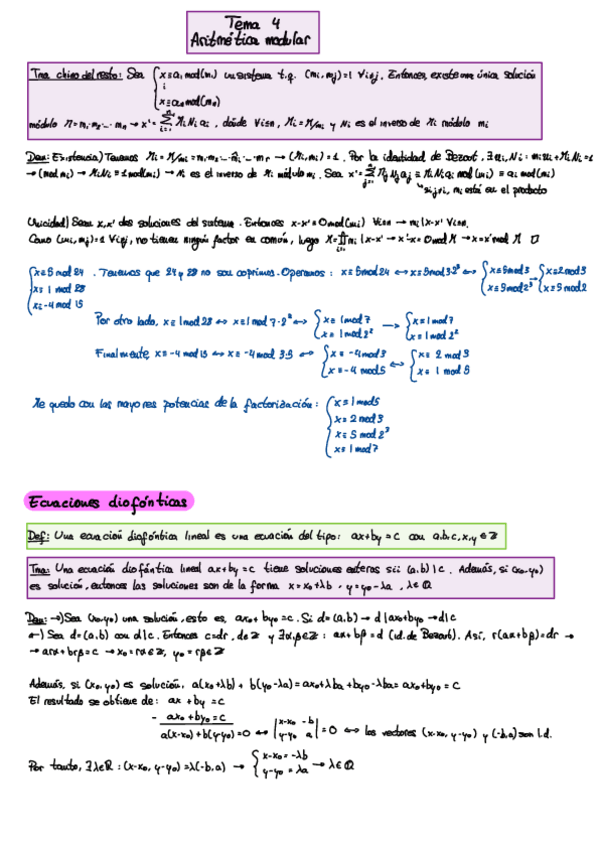 Tema 4
Aritmética modular
Tma chino del resto: Sea { x≡a₁ mod(m₁) un sistema t.q. (mi,mj)=1 ∀i≠j. Entonces, existe una única solución
⋮
x≡aₙ mod(mₙ)
módulo M=m₁·m₂·…·mₙ → x'=∑ᵢ₌₁ⁿ MiNiai, donde ∀i≤n, Mi=M/mi y Ni es el inverso de Mi módulo mi
Dem: Existencia) Tenemos Mi=M/mi → (Mi,mi)=1. Por la identidad de Bezout, ∃ui,Ni: miui+MiNi=1
→(mod mi) → MiNi≡1mod(mi) → Ni es el inverso de Mi módulo mi. Sea x'=∑ⱼ₌₁ⁿ MjNjaj ≡ MiNiai mod(mi) ≡ ai mod(mi)
si j≠i, mi está en el producto
Unicidad) Sean x,x' dos soluciones del sistema. Entonces x-x'≡0mod(mi) ∀i≤n → mi|x-x' ∀i≤n.
Como (mi,mj)=1 ∀i≠j, no tienen ningún factor en común, luego M=∏mi|x-x' → x'-x≡0mod M → x≡x'mod M □
{ x≡5 mod 24 . Tenemos que 24 y 28 no son coprimos. Operamos: x≡5mod24 ↔ x≡5mod3·2³ ↔ { x≡5mod3 → { x≡2mod3
x≡1 mod 28 x≡5mod2³ x≡5mod2³
x≡-4 mod 15
Por otro lado, x≡1mod28 ↔ x≡1mod7·2² ↔ { x≡1mod7 → { x≡1mod7
x≡1mod2² x≡1mod2²
Finalmente, x≡-4mod15 ↔ x≡-4mod3·5 ↔ { x≡-4mod3 ↔ { x≡2mod3
x≡-4mod5 x≡1mod5
Me quedo con las mayores potencias de la factorización: { x≡1mod5
x≡2mod3
x≡5mod2³
x≡1mod7
Ecuaciones diofánticas
Def: Una ecuación diofántica lineal es una ecuación del tipo: ax+by=c con a,b,c,x,y∈ℤ
Tma: Una ecuación diofántica lineal ax+by=c tiene soluciones enteras sii (a,b)|c. Además, si (x₀,y₀)
es solución, entonces las soluciones son de la forma x=x₀+λb, y=y₀-λa, λ∈ℚ
Dem: →)Sea (x₀,y₀) una solución, esto es, ax₀+by₀=c. Si d=(a,b) → d|ax₀+by₀ → d|c
←) Sea d=(a,b) con d|c. Entonces c=dr, d∈ℤ y ∃α,β∈ℤ: aα+bβ=d (id. de Bezout). Así, r(aα+bβ)=dr →
→ aαr+brβ=c → x₀=rα∈ℤ, y₀=rβ∈ℤ
Además, si (x₀,y₀) es solución, a(x₀+λb)+b(y₀-λa)=ax₀+λba+by₀-λba=ax₀+by₀=c
El resultado se obtiene de: ax+by=c
- ax₀+by₀=c
a(x-x₀)+b(y-y₀)=0 ↔ |x-x₀ -b; y-y₀ a|=0 ↔ los vectores (x-x₀,y-y₀) y (-b,a) son l.d.
Por tanto, ∃λ∈ℝ: (x-x₀,y-y₀)=λ(-b,a) → { x-x₀=-λb → λ∈ℚ
y-y₀=λa